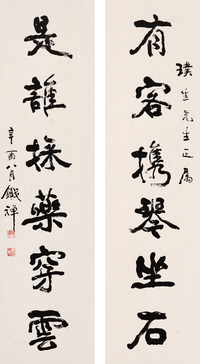 璞生先生正属
有客携琴坐石
是谁採藥穿雲
辛酉八月鐵禪